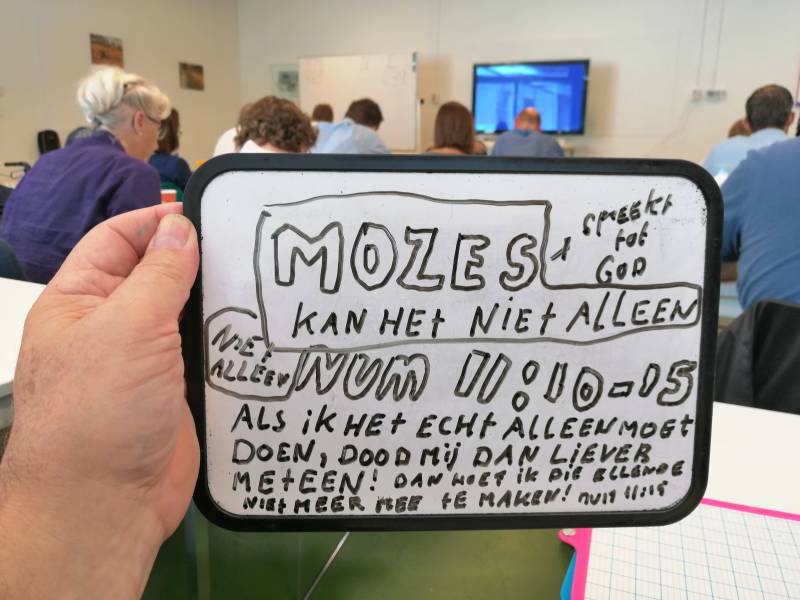 MOZES
KAN HET NIET ALLEEN
SPREEKT
TOT
GOD
NIET
ALLEEN
NUM 11:10-15
ALS IK HET ECHT ALLEEN MOET
DOEN, DOOD MIJ DAN LIEVER
METEEN! DAN HOEF IK DIE ELLENDE
NIET MEER MEE TE MAKEN! NUM 11:15